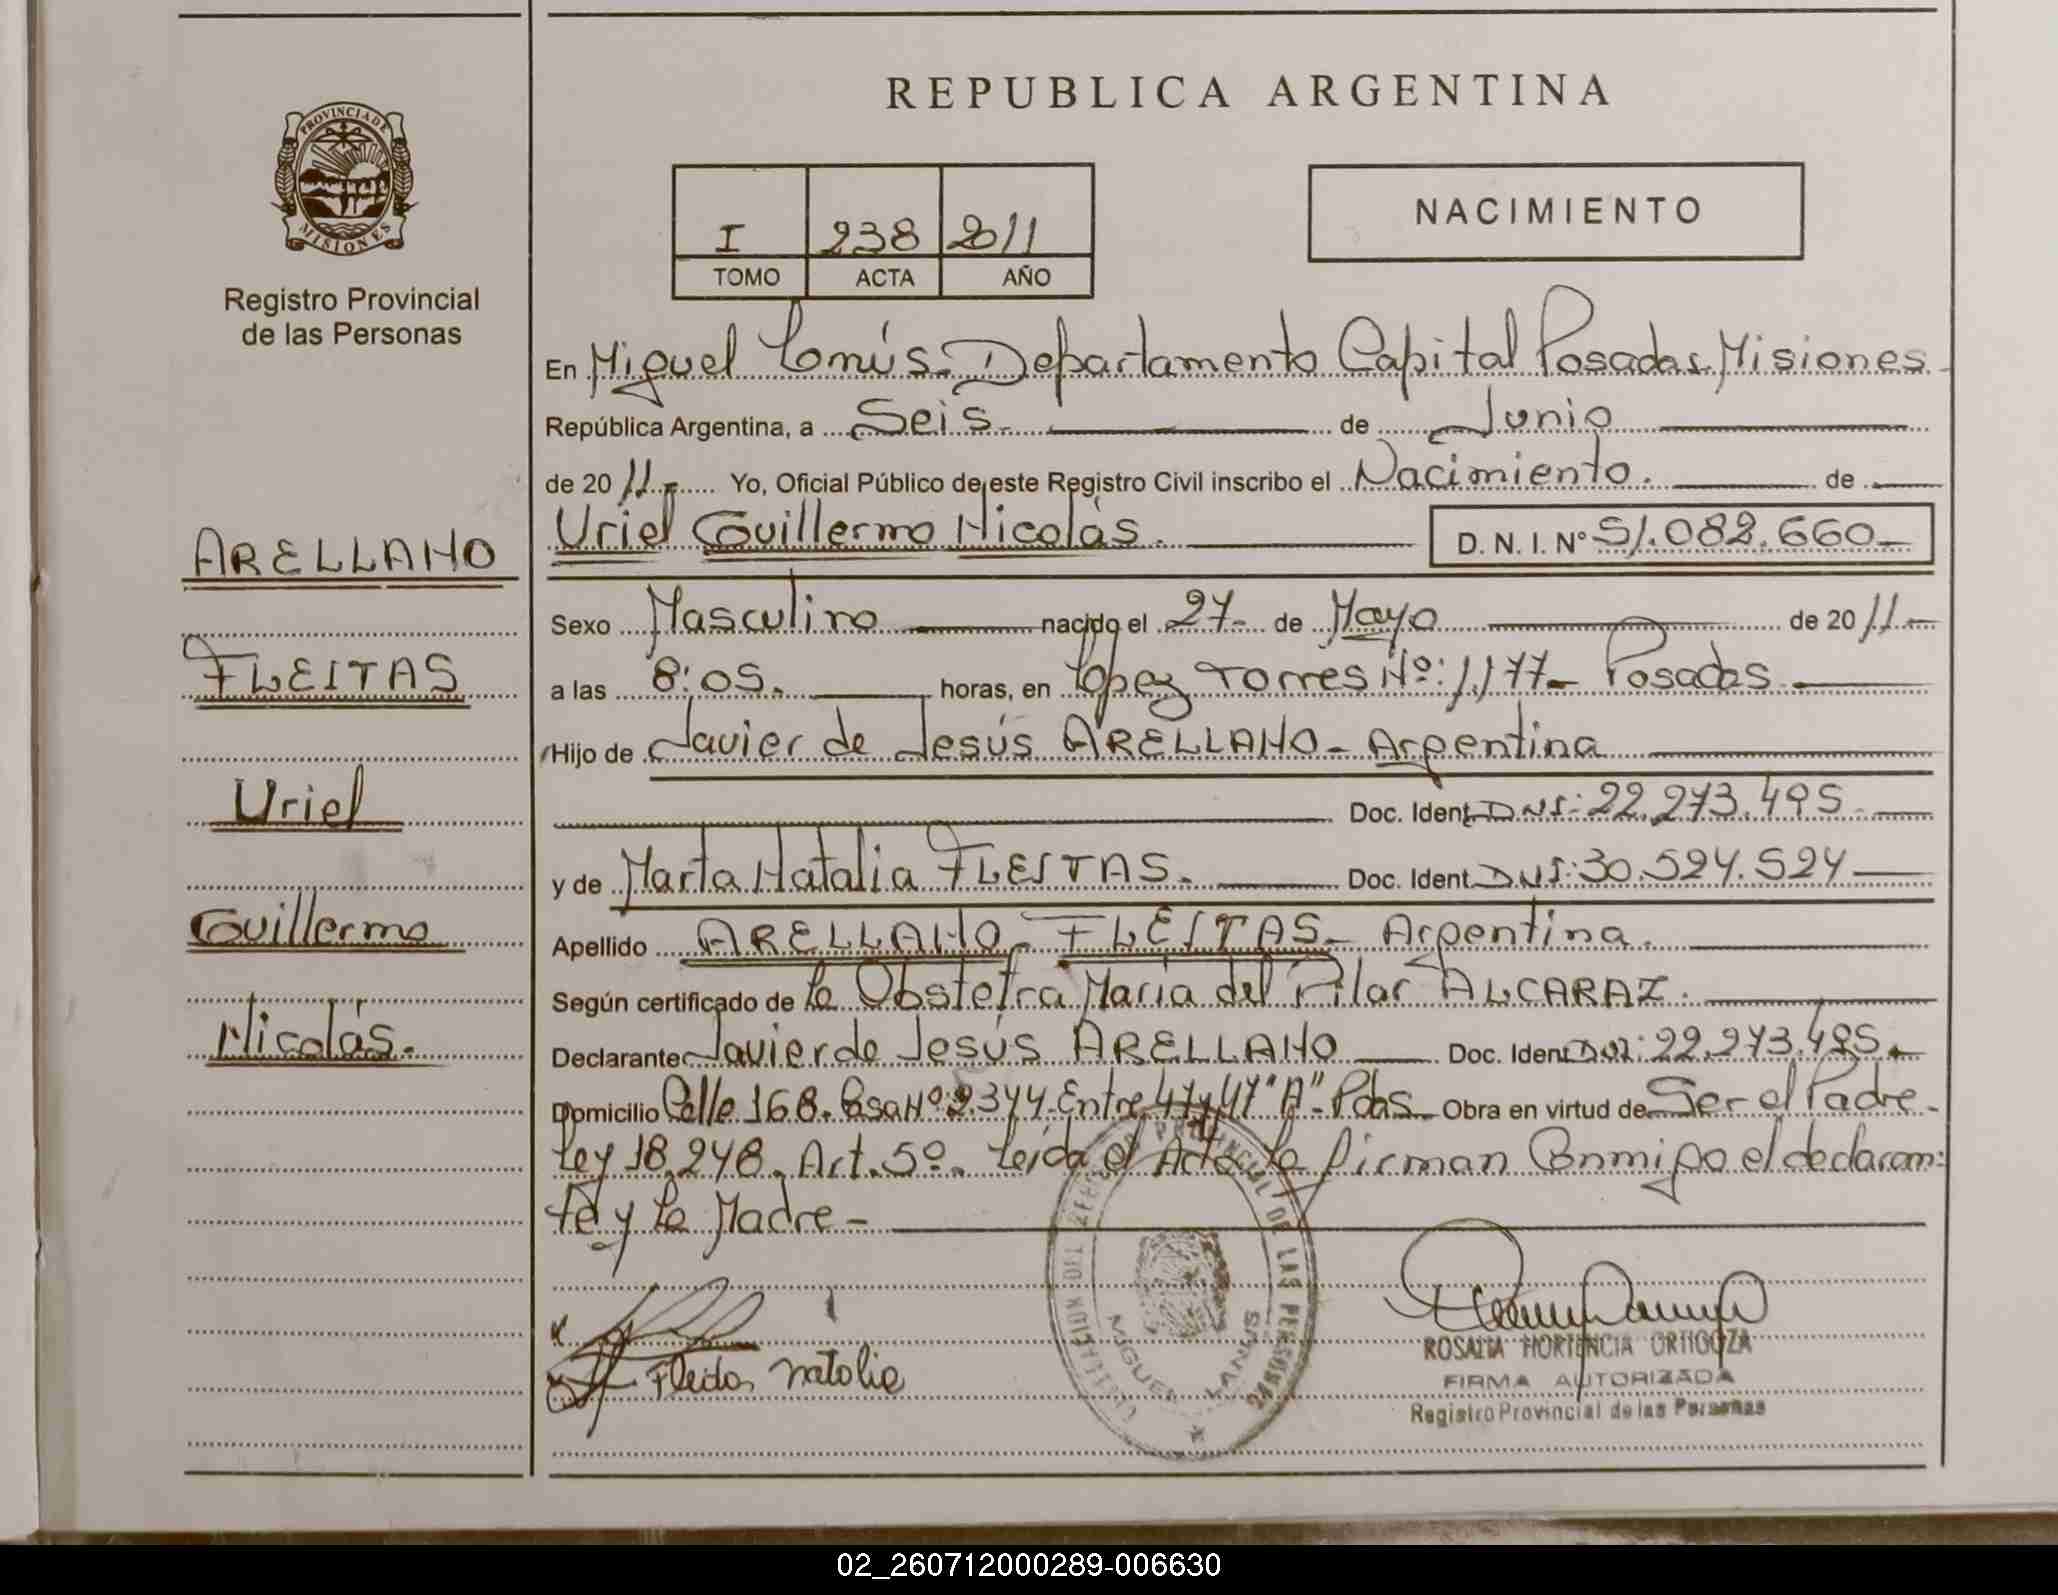 REPUBLICA ARGENTINA
PROVINCIA DE
MISIONES
Registro Provincial
de las Personas
I 238 2011
TOMO ACTA AÑO
NACIMIENTO
En Miguel Lanús. Departamento Capital Posadas, Misiones
República Argentina, a Seis de Junio
de 2011 Yo, Oficial Público de este Registro Civil inscribo el Nacimiento. de
Uriel Guillermo Nicolás. D. N. I. Nº 51.082.660
Sexo Masculino nacido el 27 de Mayo de 2011
a las 8:05. horas, en López Torres Nº: 1,177 Posadas
Hijo de Javier de Jesús ARELLANO - Argentina
Doc. Ident. DNI: 22.273.495
y de Marta Natalia FLEITAS. Doc. Ident. DNI: 30.524.524
Apellido ARELLANO FLEITAS - Argentina.
Según certificado de la Obstetra María del Pilar ALCARAZ.
Declarante Javier de Jesús ARELLANO Doc. Ident. DNI: 22.273.495
Domicilio Calle 168. Casa Nº 2.344 Entre 47 y 47 "A" - Pdas Obra en virtud de Ser el Padre
Ley 18.248. Art. 5º. Leída el Acta la firman Conmigo el declaran-
te y la Madre
ARELLANO
FLEITAS
Uriel
Guillermo
Nicolás.
Fleitas Natalia
DE LAS PERSONAS
MIGUEL LANUS
ROSALIA HORTENCIA ORTIGOZA
FIRMA AUTORIZADA
Registro Provincial de las Personas
02_260712000289-006630